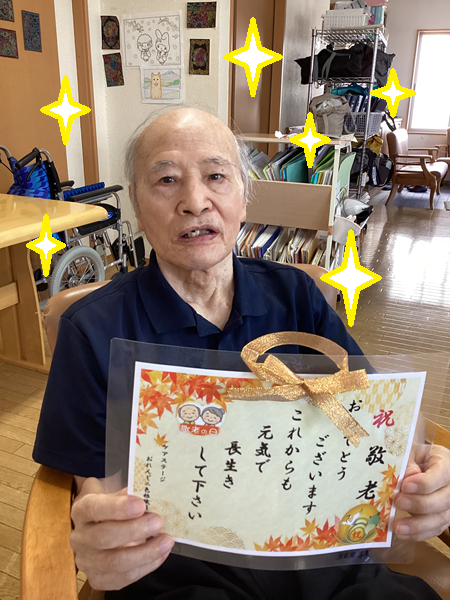 祝 敬老
お
とう
ございます
これからも
元気で
長生き
して下さい
敬老の日
ケアステージ
祝